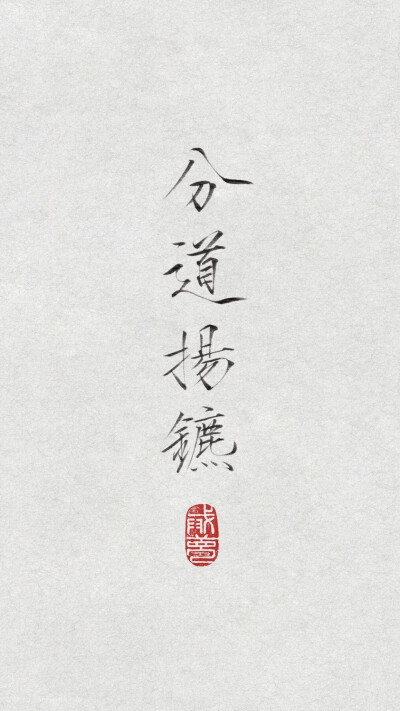 分道揚鑣